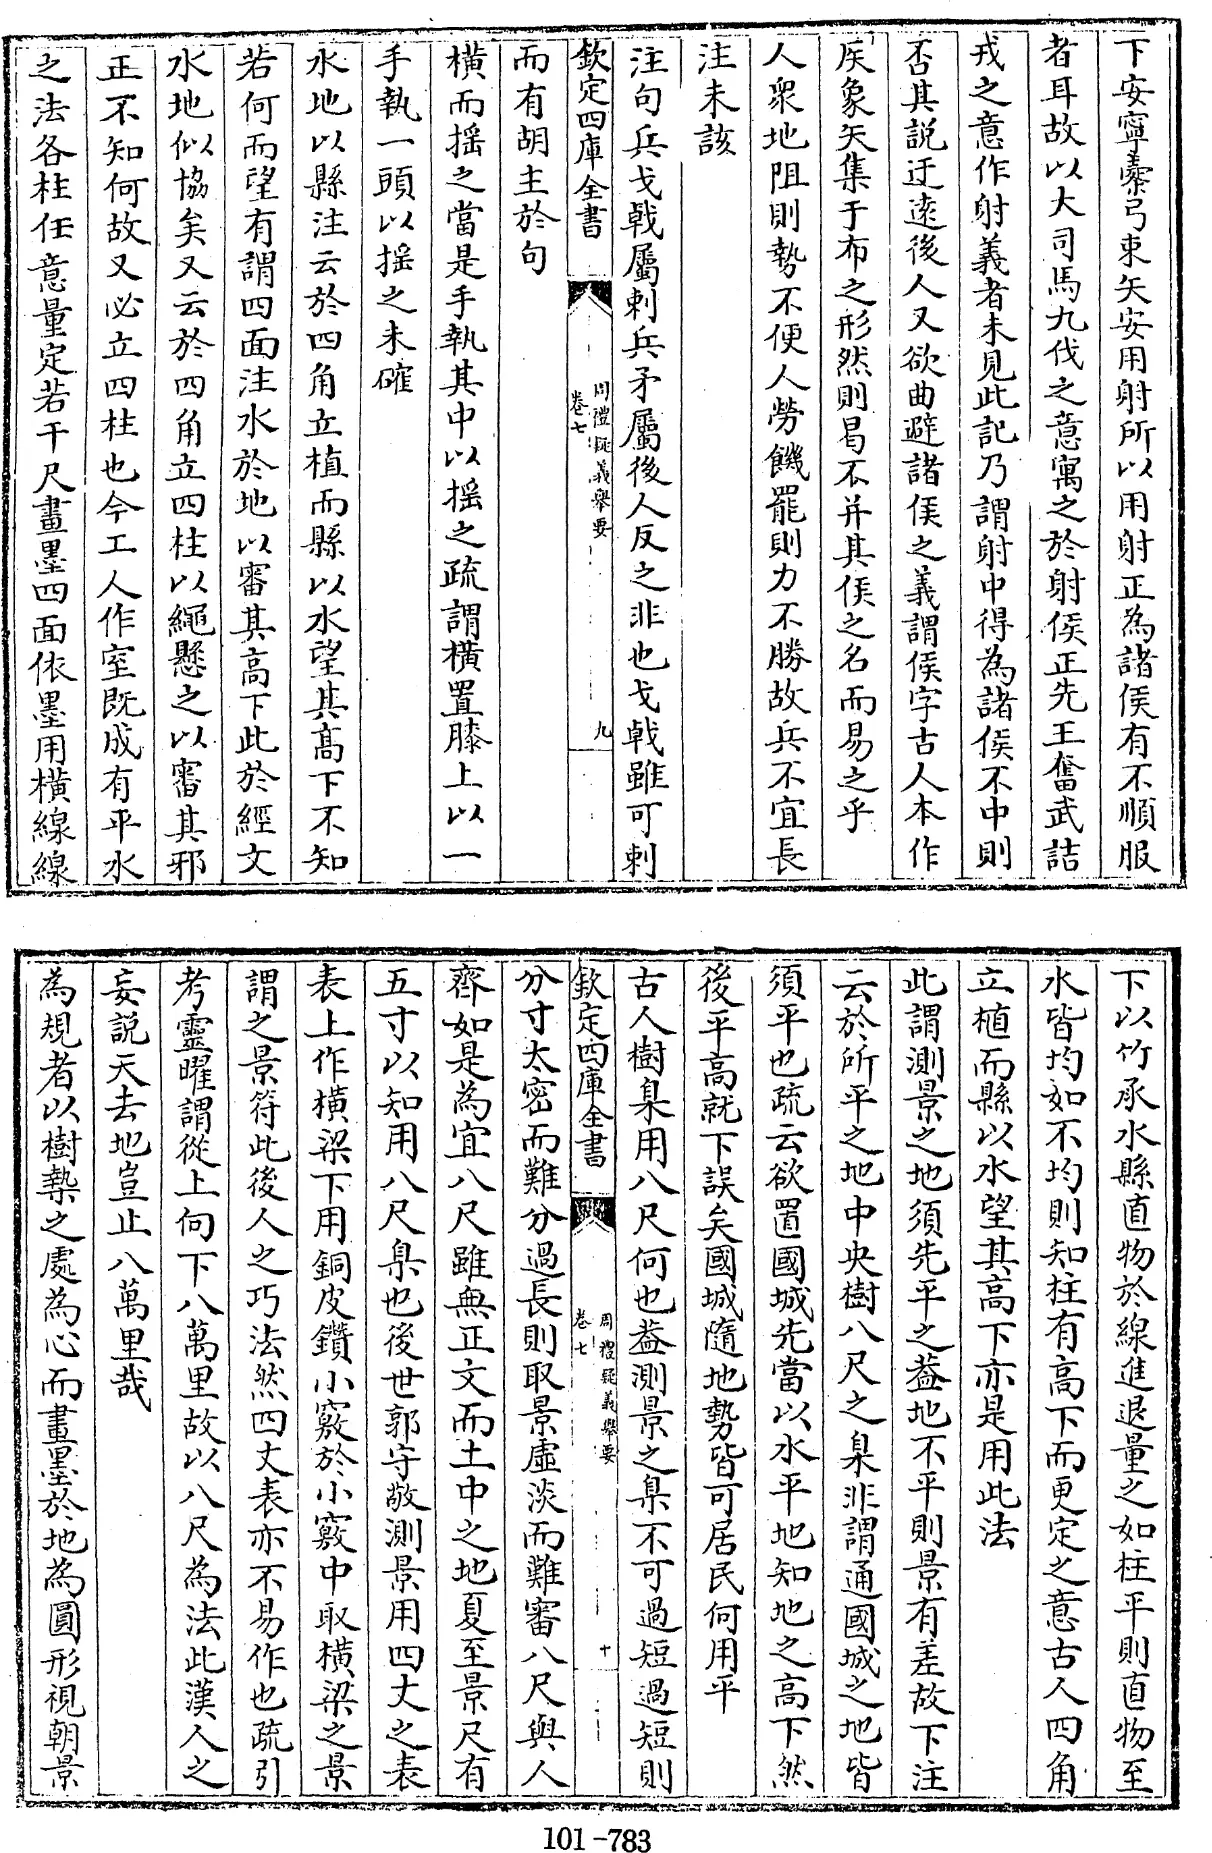 下安寧櫜弓束矢安用射所以用射正為諸侯有不順服
者耳故以大司馬九伐之意寓之於射侯正先王奮武詰
戎之意作射義者未見此記乃謂射中得為諸侯不中則
否其說迂逺後人又欲曲避諸侯之義謂侯字古人本作
矦象矢集于布之形然則曷不并其侯之名而易之乎
人衆地阻則勢不便人勞饑罷則力不勝故兵不宜長
注未該
注句兵戈戟屬刺兵矛屬後人反之非也戈戟雖可刺
欽定四庫全書
周禮疑義舉要
卷七
九
而有胡主於句
橫而揺之當是手執其中以揺之疏謂橫置膝上以一
手執一頭以揺之未確
水地以縣注云於四角立植而縣以水望其高下不知
若何而望有謂四面注水於地以審其高下此於經文
水地似協矣又云於四角立四柱以繩懸之以審其邪
正不知何故又必立四柱也今工人作室既成有平水
之法各柱任意量定若干尺畫墨四面依墨用橫線線
下以竹承水縣直物於線進退量之如柱平則直物至
水皆均如不均則知柱有高下而更定之意古人四角
立植而縣以水望其高下亦是用此法
此謂測景之地須先平之葢地不平則景有差故下注
云於所平之地中央樹八尺之臬非謂通國城之地皆
須平也疏云欲置國城先當以水平地知地之高下然
後平高就下誤矣國城隨地勢皆可居民何用平
古人樹臬用八尺何也葢測景之臬不可過短過短則
欽定四庫全書
周禮疑義舉要
卷七
十
分寸太密而難分過長則取景虛淡而難審八尺與人
齊如是為宜八尺雖無正文而土中之地夏至景尺有
五寸以知用八尺臬也後世郭守敬測景用四丈之表
表上作橫梁下用銅皮鑽小竅於小竅中取橫梁之景
謂之景符此後人之巧法然四丈表亦不易作也疏引
考靈曜謂從上向下八萬里故以八尺為法此漢人之
妄說天去地豈止八萬里哉
為規者以樹槷之處為心而畫墨於地為圓形視朝景
101-783